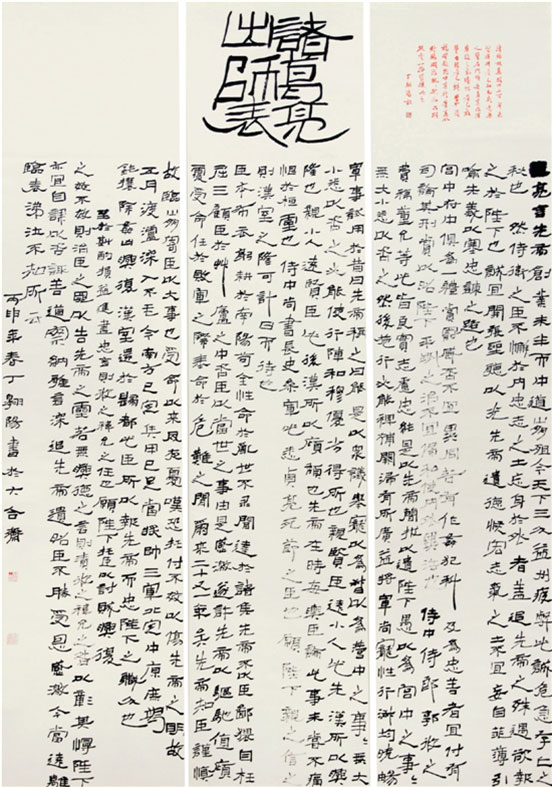 諸葛亮
出師表
亮言先帝創業未半而中道崩殂今天下三分益州疲弊此誠危急存亡之
秋也 然侍衛之臣不懈於內忠志之士忘身於外者蓋追先帝之殊遇欲報
之於陛下也 誠宜開張聖聽以光先帝遺德恢宏志氣之士不宜妄自菲薄引
喻失義以塞忠諫之路也
宮中府中俱為一體陟罰臧否不宜異同若有作奸犯科 及為忠善者宜付有
司論其刑賞以昭陛下平明之治不宜偏私使內外異法也 侍中侍郎郭攸之
費禕董允等此皆良實志慮忠純是以先帝簡拔以遺陛下愚以為宮中之事事
無大小悉以咨之然後施行必能裨補闕漏有所廣益將軍向寵性行淑均曉暢
軍事試用於昔日先帝稱之曰能是以眾議舉寵以為督以為營中之事事無大
小悉以咨之必能使行陣和穆優劣得所也親賢臣遠小人此先漢所以興
隆也親小人遠賢臣此後漢所以傾頹也先帝在時每與臣論此事未嘗不痛
恨於桓靈也 侍中尚書長史參軍此悉貞亮死節之臣也願陛下親之信之
則漢室之隆可計日而待也
臣本布衣躬耕於南陽苟全性命於亂世不求聞達於諸侯先帝不以臣卑鄙猥自枉
屈三顧臣於草廬之中咨臣以當世之事由是感激遂許先帝以驅馳值傾
覆受命任於敗軍之際奉命於危難之間爾來二十又一年矣先帝知臣謹慎
故臨崩寄臣以大事也受命以來夙夜憂嘆恐付不效以傷先帝之明故
五月渡瀘深入不毛今南方已定兵甲已足當獎帥三軍北定中原庶竭
駑鈍攘除奸凶興復漢室還於舊都此臣所以報先帝而忠陛下之職分也
至於斟酌損益進盡忠言則攸之禕允之任也願陛下托臣以討賊興復
之效不效則治臣之罪以告先帝之靈若無興德之言則責攸之禕允之咎以彰其慢陛下
亦宜自謀以咨諏善道察納雅言深追先帝遺詔臣不勝受恩感激今當遠離
臨表涕泣不知所云
丙申年春丁翱陽書於大合齋